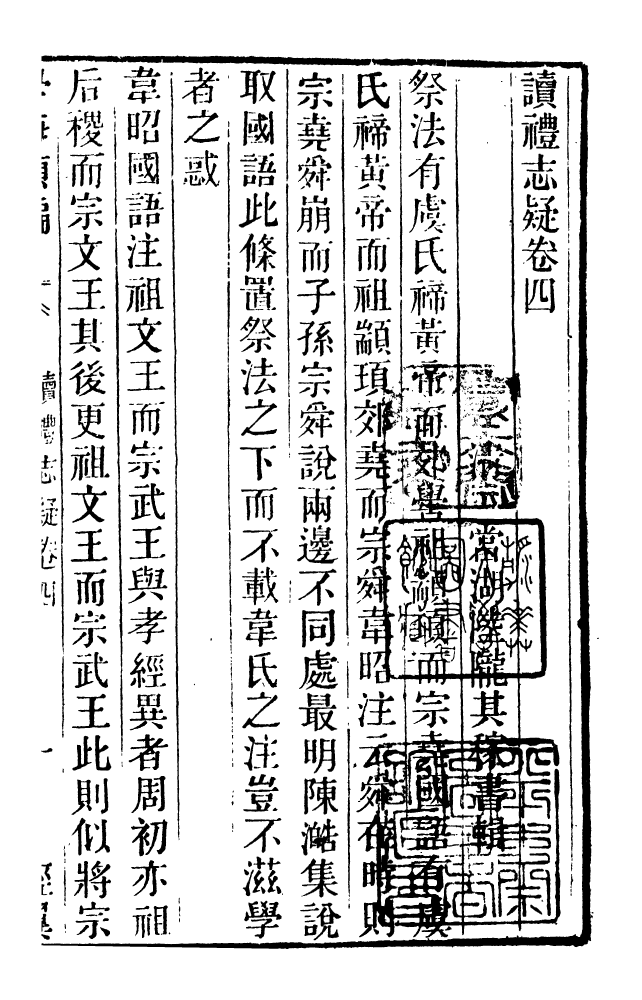 讀禮志疑卷四
當湖陸隴其稼書輯
祭法有虞氏禘黃帝而郊嚳祖顓頊而宗堯國語有虞
氏禘黃帝而祖顓頊郊堯而宗舜韋昭注云舜在時則
宗堯舜崩而子孫宗舜說兩邊不同處最明陳澔集說
取國語此條置祭法之下而不載韋氏之注豈不滋學
者之惑
韋昭國語注祖文王而宗武王與孝經異者周初亦祖
后稷而宗文王其後更祖文王而宗武王此則似將宗
讀禮志疑卷四 一